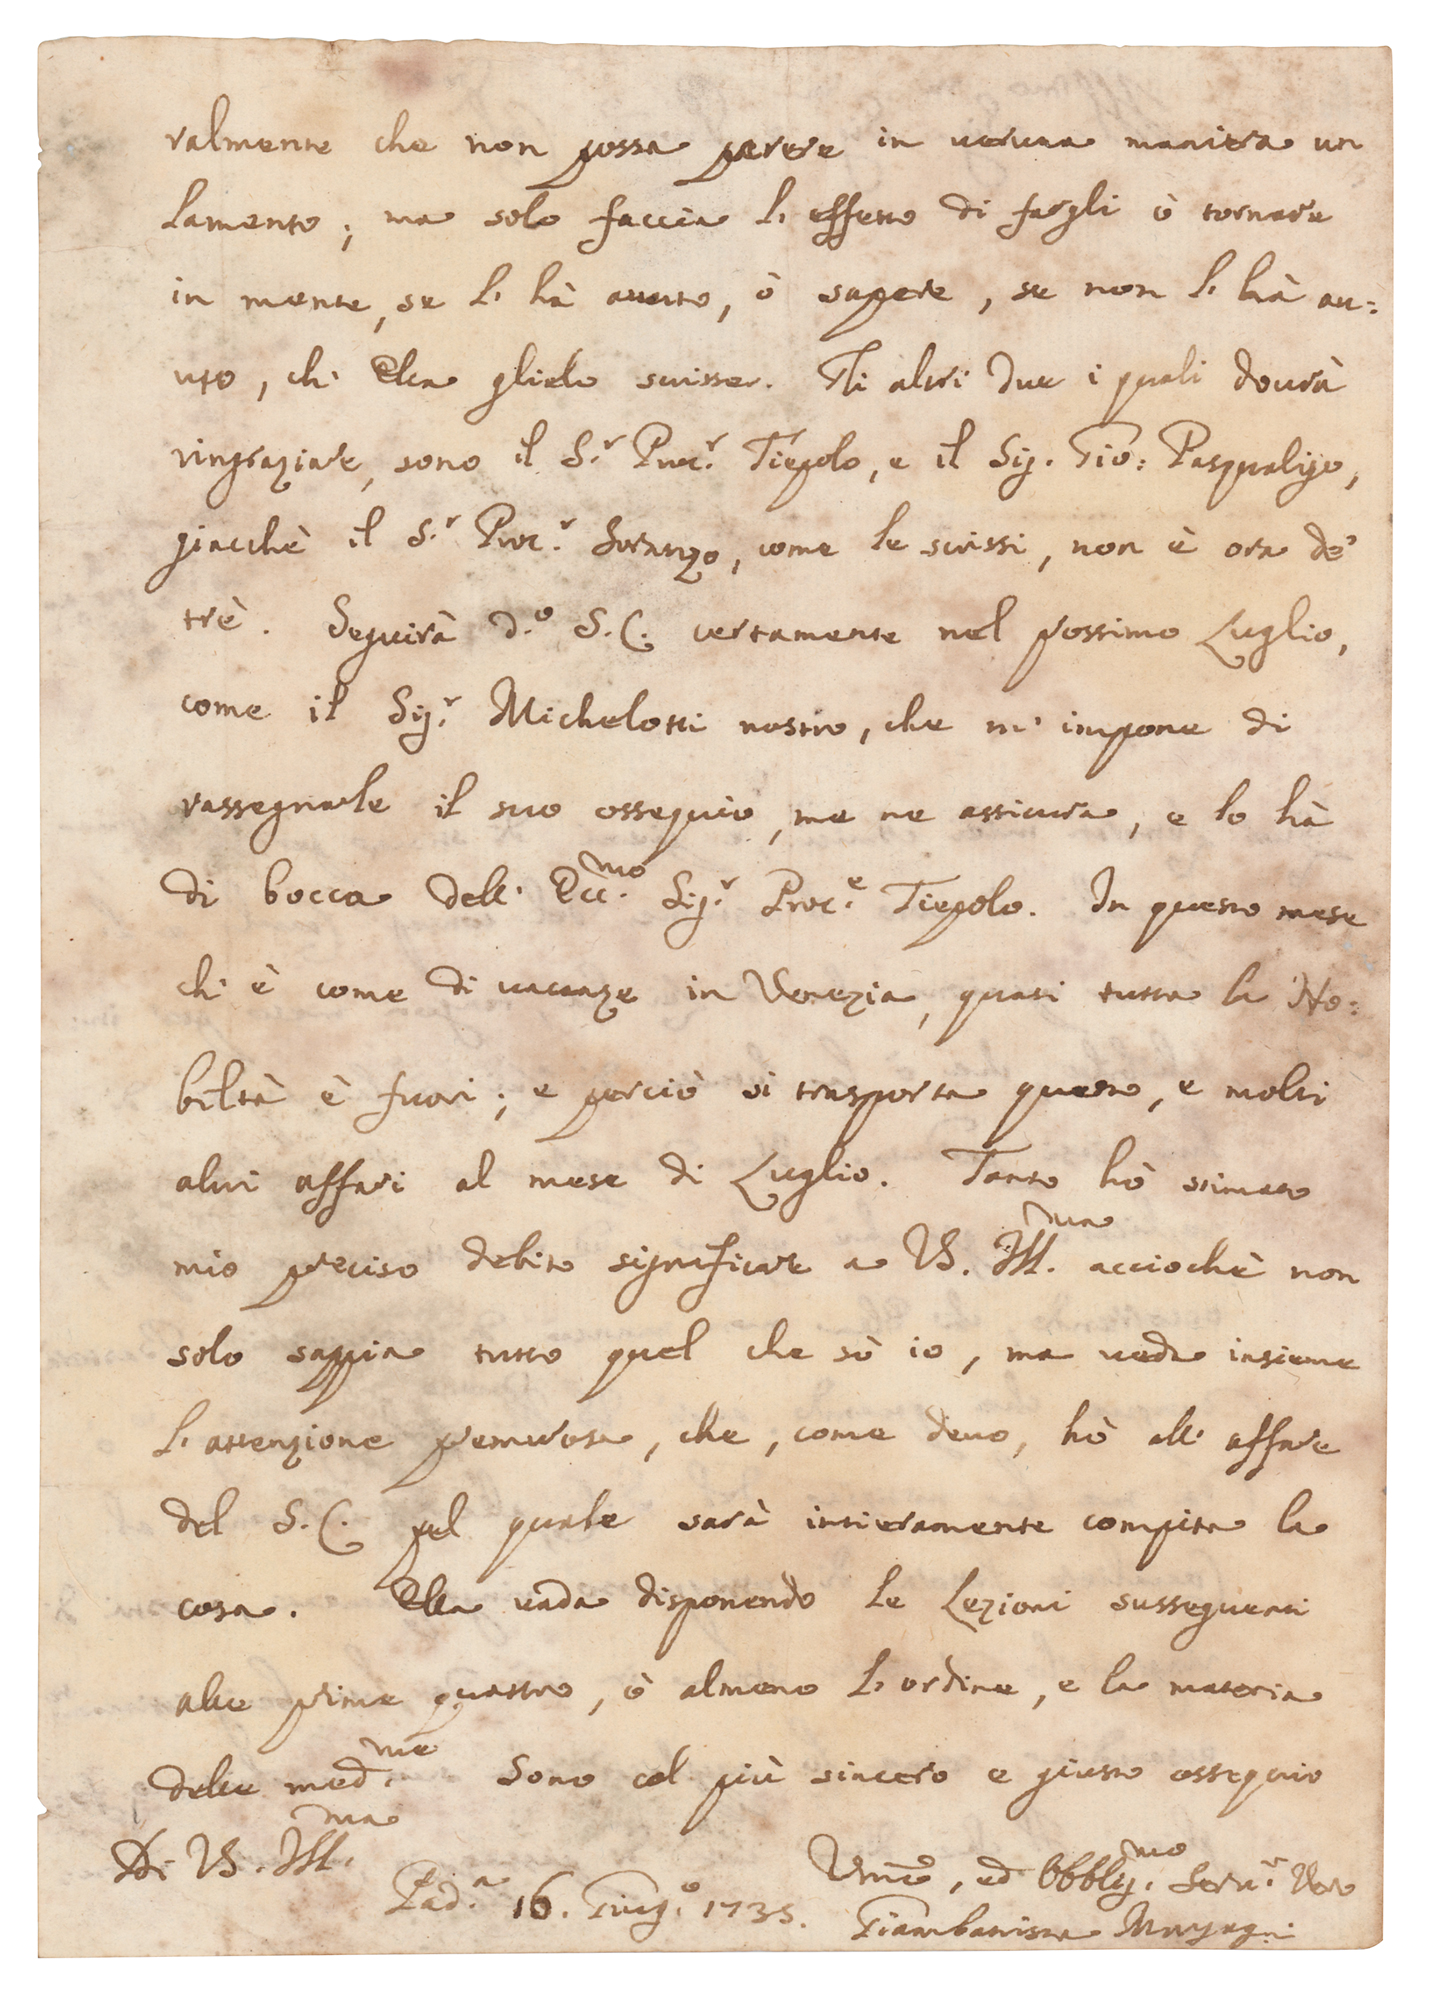 ralmente che non possa parere in veruna maniera un
lamento; ma solo faccia l'effetto di fargli ò tornare
in mente, se l'hà auuto, ò sapere, se non l'hà au:
uto, ch'Ella glielo scrisse. Gli altri due i quali dourà
ringraziare, sono il S.r Proc.r Tiepolo, e il Sig. Gio: Pasqualigo,
giacchè il S.r Proc.r Soranzo, come le scrissi, non è ora de'
trè. Seguirà d.o S.C. certamente nel prossimo Luglio,
come il Sig.r Michelotti nostro, che m'impone di
rassegnarle il suo ossequio, me ne assicura, e lo hà
di bocca dell'Ecc.mo Sig.r Proc.e Tiepolo. In questo mese
ch'è come di uacanze in Venezia, quasi tutta la No:
biltà è fuori; e perciò si trasporta questo, e molti
altri affari al mese di Luglio. Tanto hò stimato
mio preciso debito significare a VS. Ill.ma acciochè non
solo sappia tutto quel che sò io, ma ueda insieme
l'attenzione premurosa, che, come deuo, hò all'affare
del S.C. pel quale sarà intieramente compita la
cosa. Ella uada disponendo le Lezioni susseguenti
alle prime quattro, ò almeno l'ordine, e la materia
delle med.me Sono col più sincero e giusto ossequio
Di VS. Ill.ma
Pad.a 16. Giug.o 1735.
Umo, ed Obblig.mo Seru.r Vero
Giambatista Morgagni